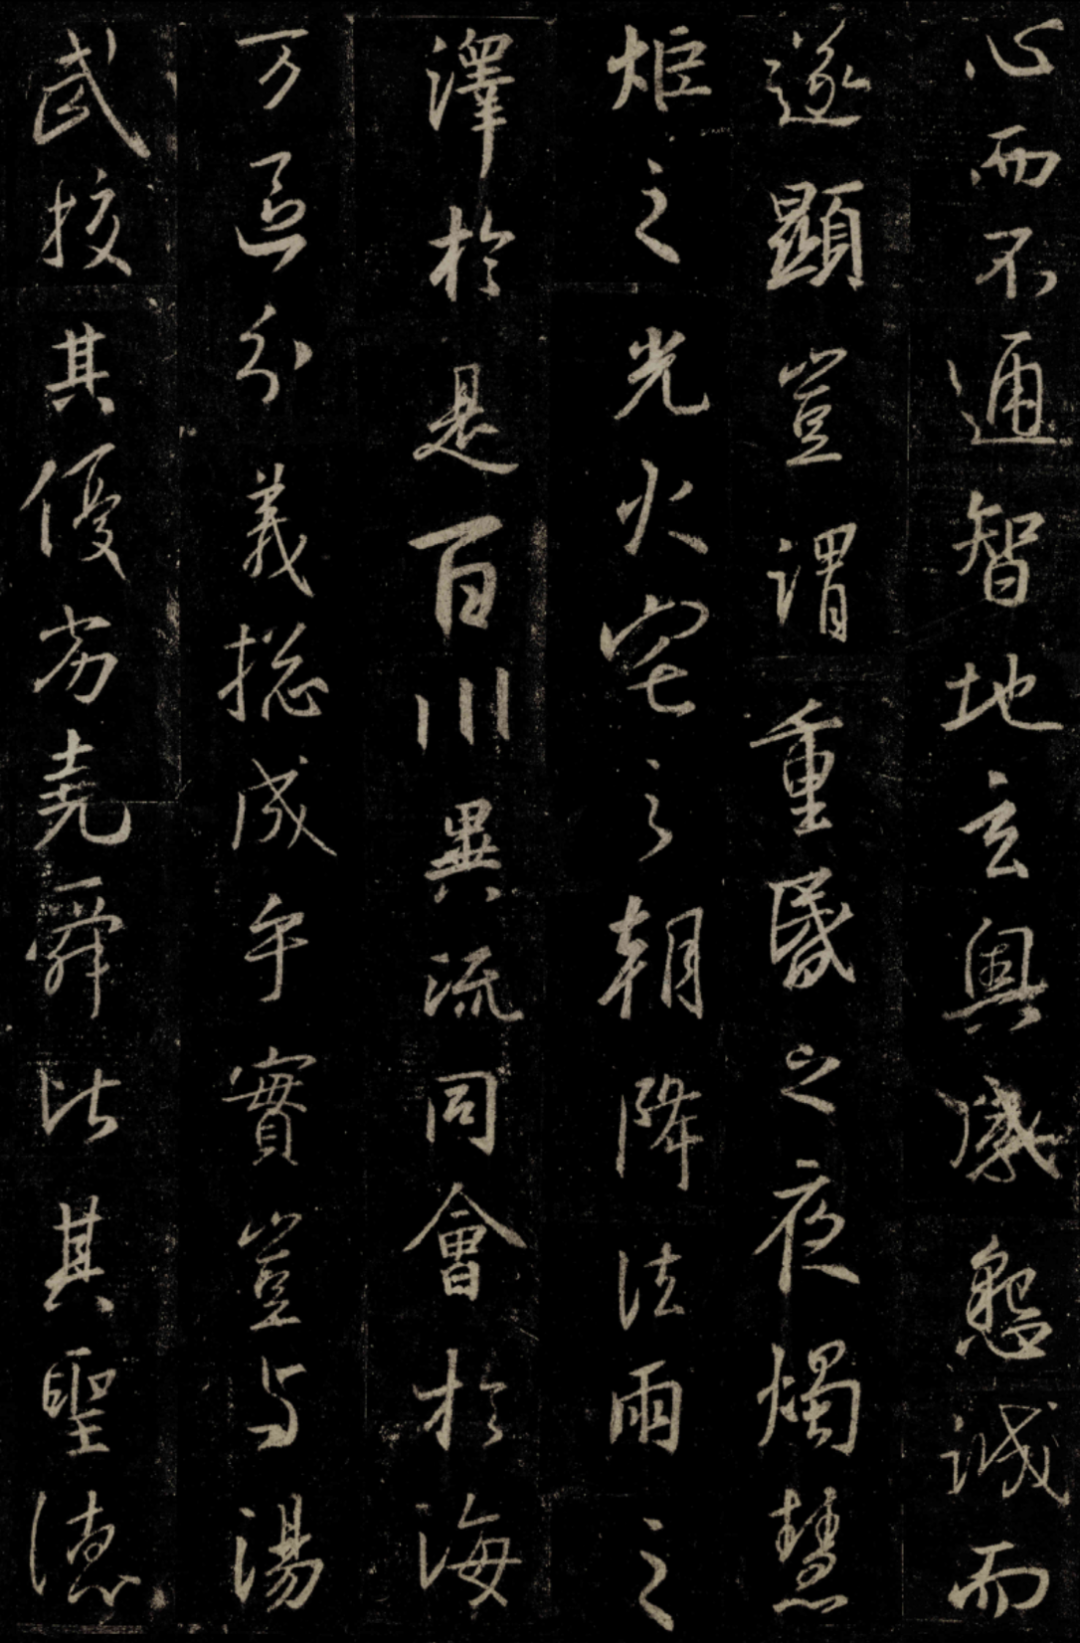 心而不通智地玄奧感懇誠而
遂顯豈謂重昬之夜燭慧
炬之光火宅之朝降法雨之
澤於是百川異流同會於海
万區分義捴成乎實豈与湯
武挍其優劣堯舜比其聖德